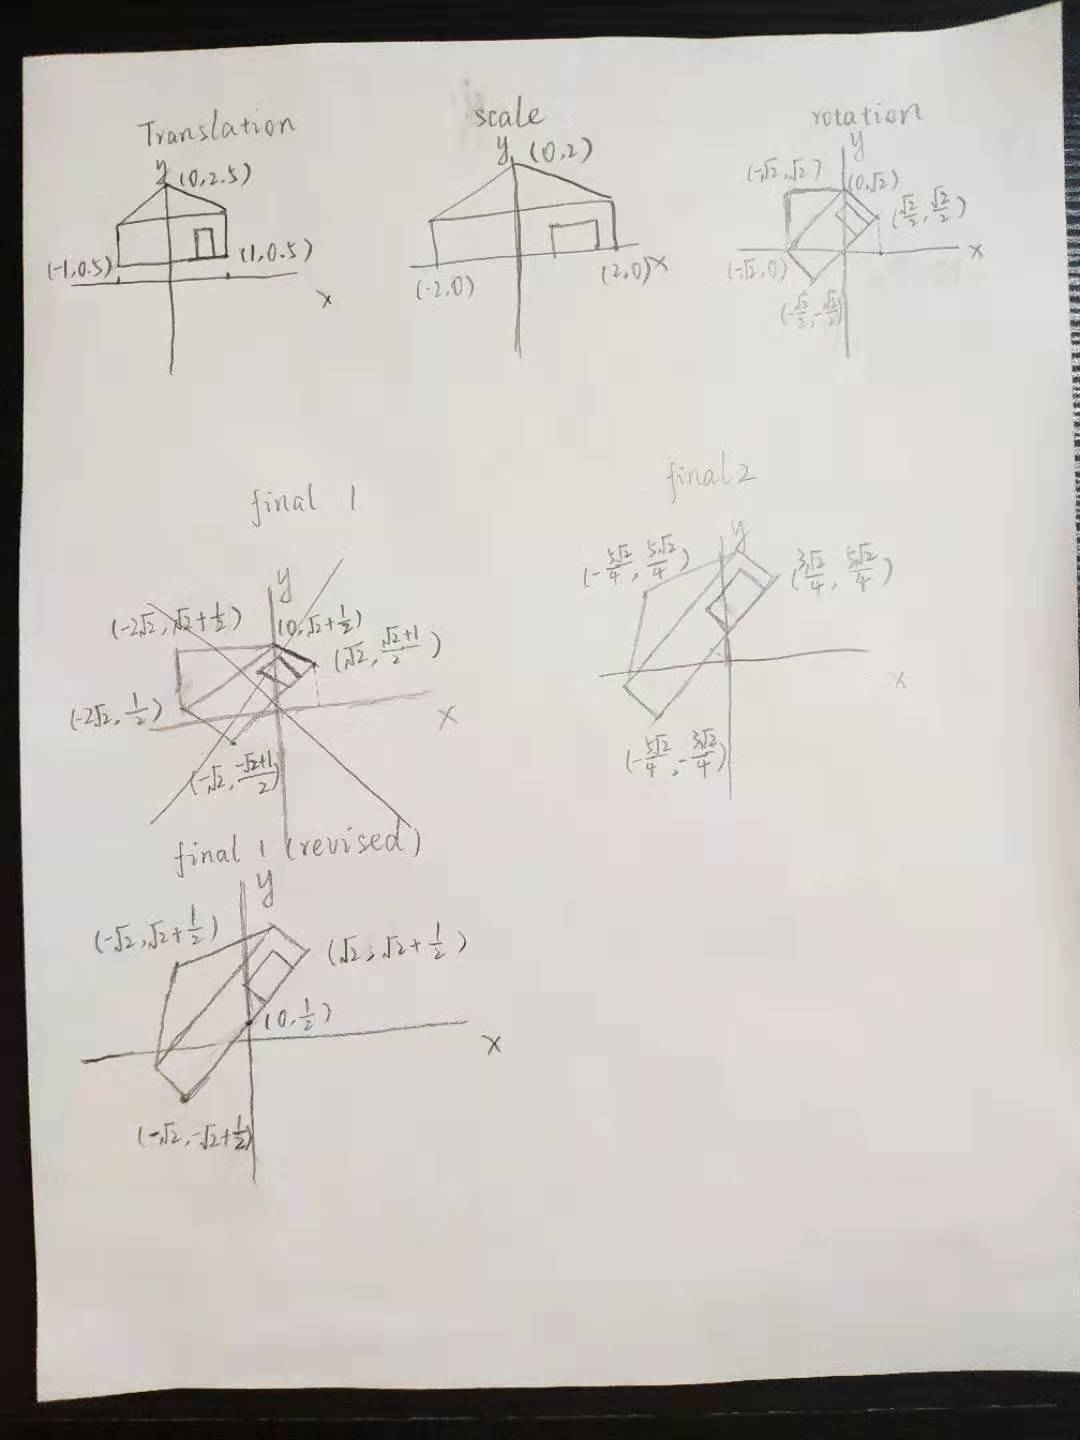 Translation
y (0,2.5)
(-1,0.5)
(1,0.5)
x
scale
y (0,2)
(-2,0)
(2,0) x
rotation
y
(-√2,√2)
(0,√2)
(√2/2, √2/2)
(-√2,0)
x
(-√2/2, -√2/2)
final 1
y
(-2√2, √2+1/2)
(0,√2+1/2)
(√2, (√2+1)/2)
(-2√2, 1/2)
x
(-√2, (-√2+1)/2)
final 2
y
(-5√2/4, 5√2/4)
(3√2/4, 5√2/4)
x
(-5√2/4, -3√2/4)
final 1 (revised)
y
(-√2, √2+1/2)
(√2, √2+1/2)
(0,1/2)
x
(-√2, -√2+1/2)